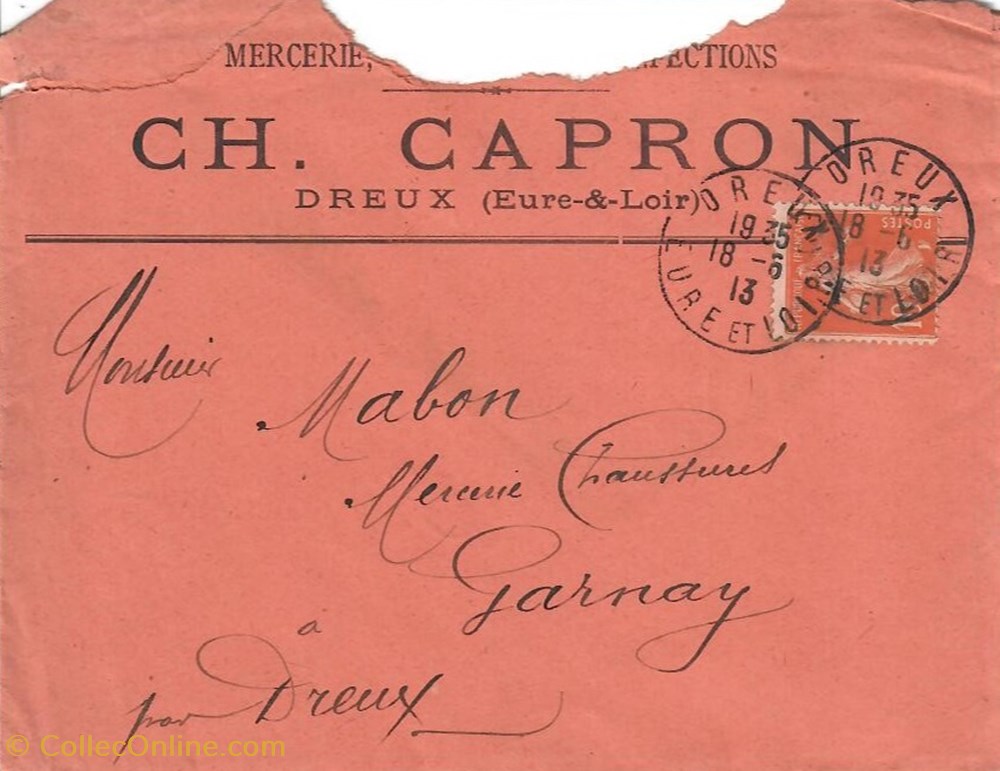 MERCERIE, FECTIONS
CH. CAPRON
DREUX (Eure-&-Loir)
DREUX
19 35
18 - 6
13
EURE ET LOIR
DREUX
19 35
18 - 6
13
EURE ET LOIR
POSTES
10
Monsieur
Mabon
Mercerie Chaussures
Garnay
a
par Dreux
© CollecOnline.com